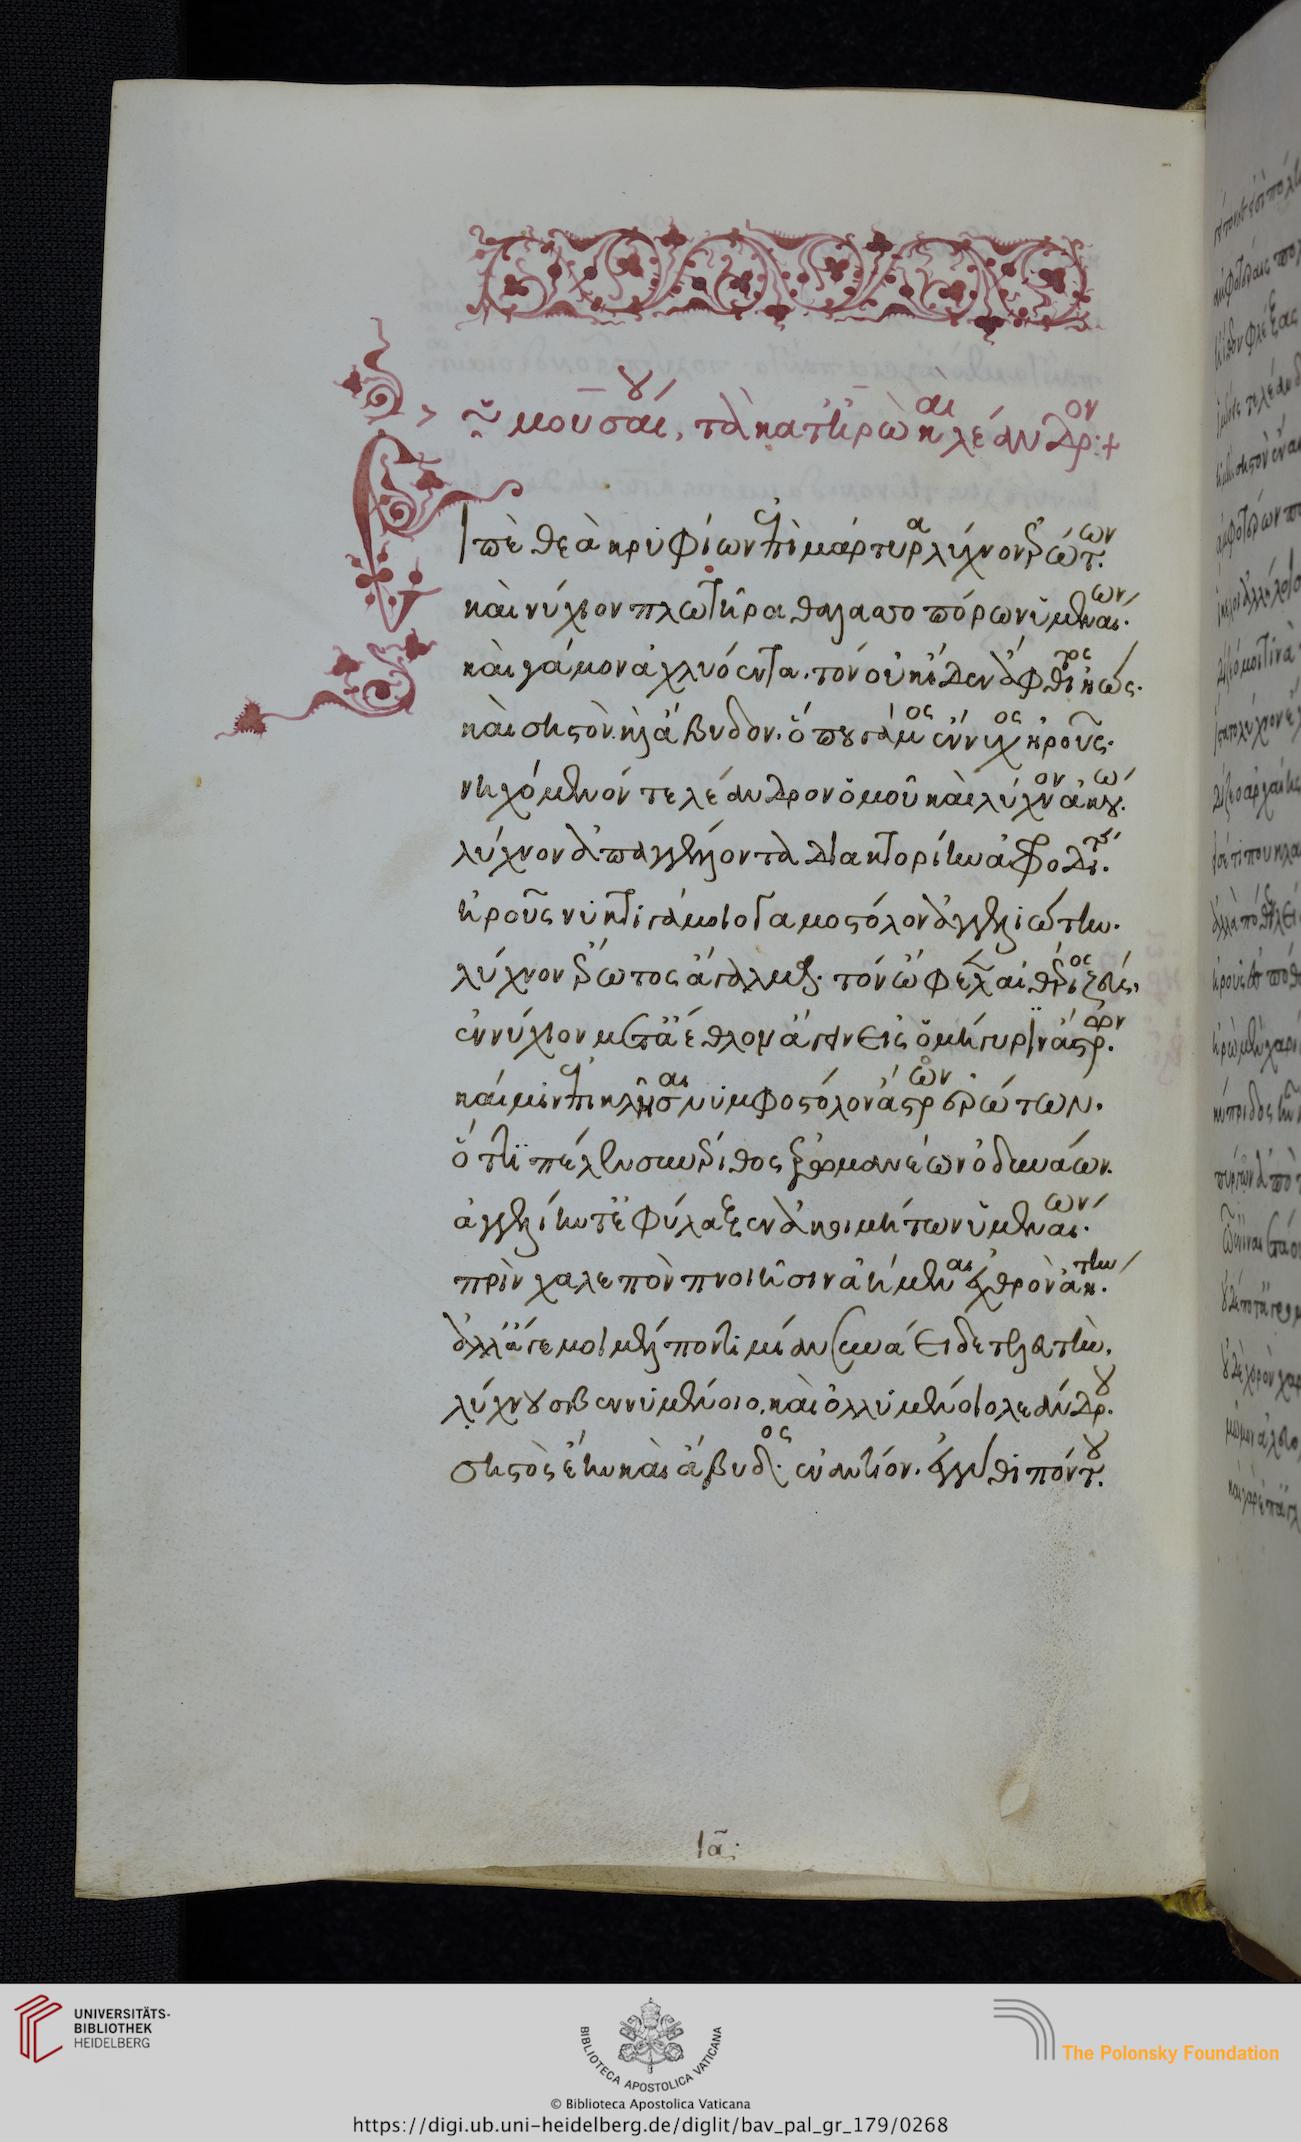 μουσαίου, τὰ καθ' ἡρὼ καὶ λέανδρον:+
Εἰπὲ θεὰ κρυφίων ἐπιμάρτυρα λύχνον ἐρώτων.
καὶ νύχιον πλωτῆρα θαλασσοπόρων ὑμεναίων.
καὶ γάμον ἀχλυόεντα. τὸν οὐκ ἴδεν ἄφθιτος ἠώς.
καὶ σηστὸν κὴ ἄβυδον. ὅπου γάμος ἔννυχος ἡροῦς.
νηχόμενόν τε λέανδρον ὁμοῦ καὶ λύχνον ἀκούω.
λύχνον ἀπαγγέλλοντα διακτορίην ἀφροδίτης.
ἡροῦς νυκτιγάμοιο γαμοστόλον ἀγγελιώτην.
λύχνον ἔρωτος ἄγαλμα. τὸν ὤφελεν αἰθέριος ζεύς.
ἐννύχιον μετ' ἄεθλον ἄγειν εἰς ὁμήγυριν ἄστρων.
καί μιν ἐπικλῆσαι νυμφοστόλον ἄστρον ἐρώτων.
ὅτι πέλεν συνέριθος ἐρωμανέων ὀδυνάων.
ἀγγελίην τ' ἐφύλαξεν ἀκοιμήτων ὑμεναίων.
πρὶν χαλεπὸν πνοιῇσιν ἀήμεναι ἐχθρὸν ἀήτην.
ἀλλ' ἄγε μοι μέλποντι μίαν συνάειδε τελευτήν.
λύχνου σβεννυμένοιο, καὶ ὀλλυμένοιο λεάνδρου.
σηστὸς ἔην καὶ ἄβυδος ἐναντίον. ἐγγύθι πόντου.
ια:
UNIVERSITÄTS-
BIBLIOTHEK
HEIDELBERG
BIBLIOTECA APOSTOLICA VATICANA
The Polonsky Foundation
© Biblioteca Apostolica Vaticana
https://digi.ub.uni-heidelberg.de/diglit/bav_pal_gr_179/0268